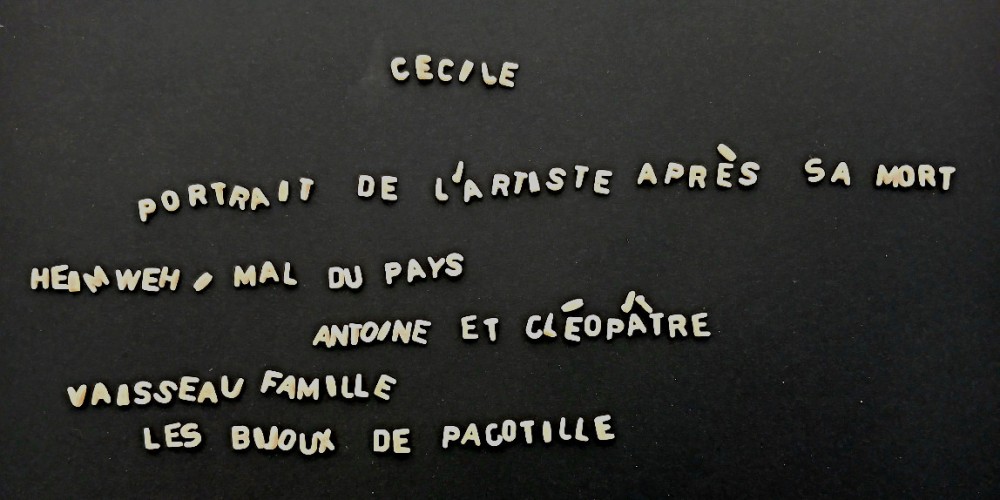 CECILE
PORTRAIT DE L'ARTISTE APRÈS SA MORT
HEIMWEH / MAL DU PAYS
ANTOINE ET CLÉOPÂTRE
VAISSEAU FAMILLE
LES BIJOUX DE PACOTILLE